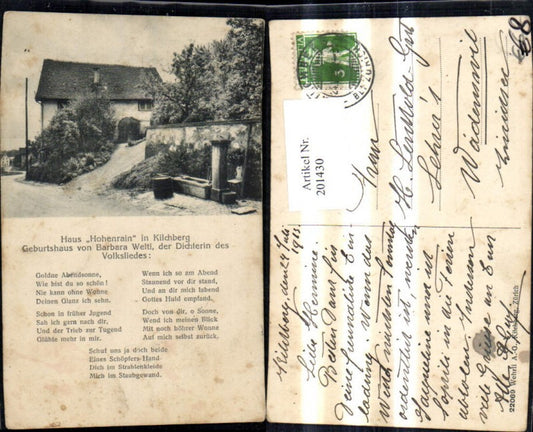 Haus „Hohenrain" in Kilchberg
Geburtshaus von Barbara Welti, der Dichterin des
Volksliedes:
Goldne Abendsonne,
Wie bist du so schön!
Nie kann ohne Wonne
Deinen Glanz ich sehn.
Schon in früher Jugend
Sah ich gern nach dir,
Und der Trieb zur Tugend
Glühte mehr in mir.
Wenn ich so am Abend
Staunend vor dir stand,
Und an dir mich labend
Gottes Huld empfand.
Doch von dir, o Sonne,
Wend ich meinen Blick
Mit noch höhrer Wonne
Auf mich selbst zurück.
Schuf uns ja doch beide
Eines Schöpfers Hand
Dich im Strahlenkleide
Mich im Staubgewand.
Artikel Nr.
201430
68
Frau
Wädenswil
Kilchberg, den 24. Juli
Liebe Hermine.
Besten Dank für
Deine freundliche Ein-
ladung. Wenn das
ordentlich ist, werden
Jacqueline und
in die Ferien
viele Grüsse an Euch
22069 Wehrli A.-G., Kilchberg-Zürich